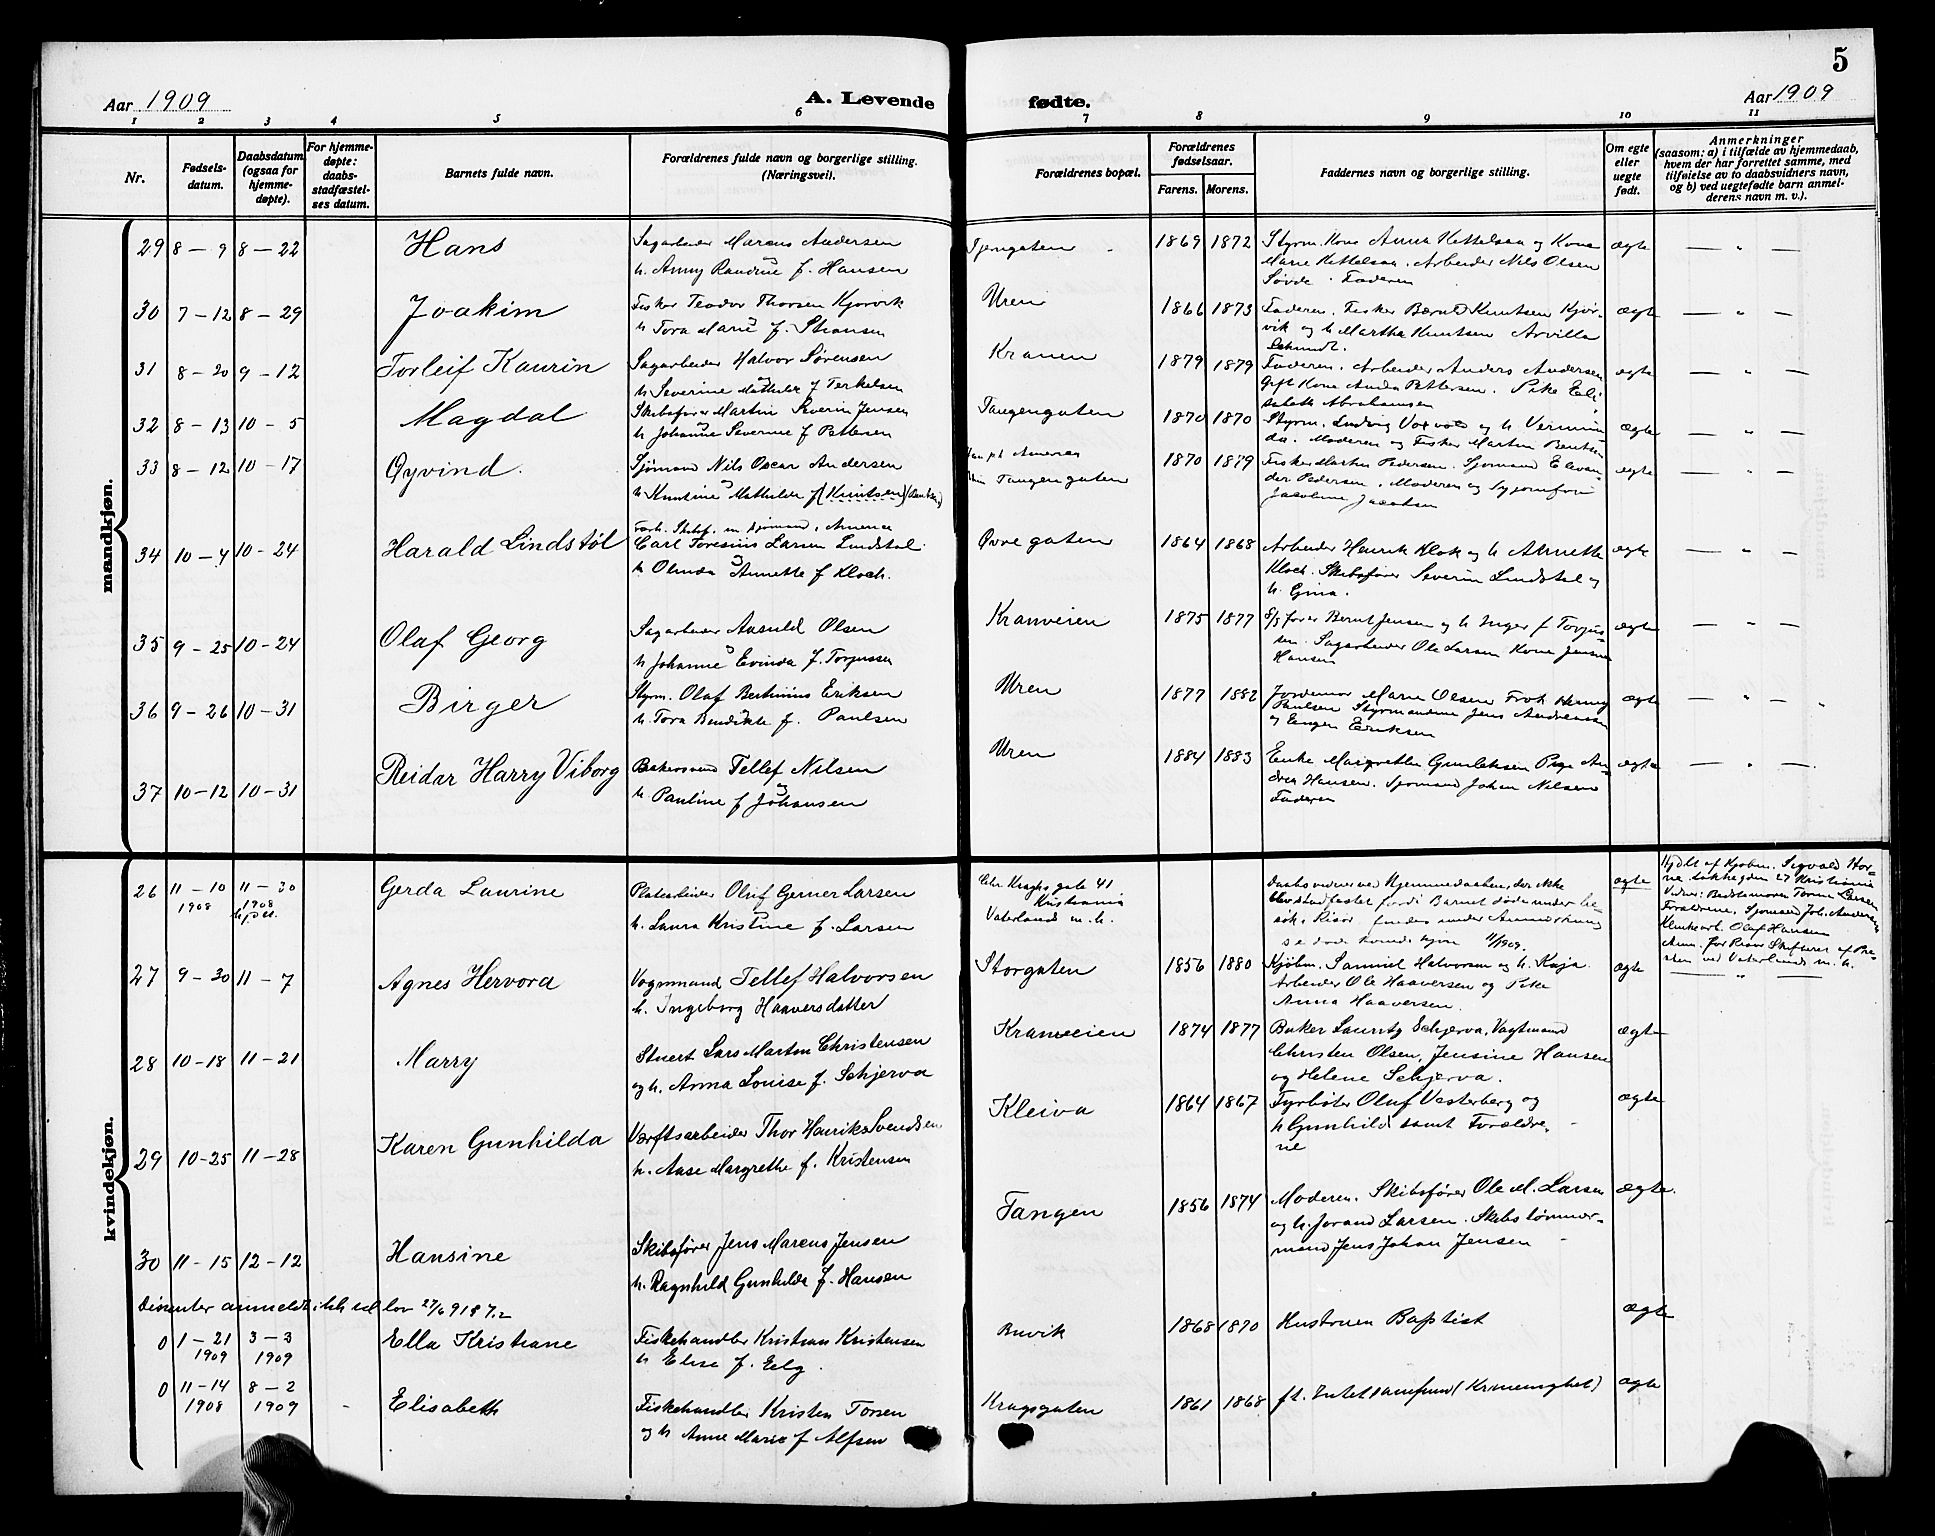 5
Aar 1909
A. Levende fødte.
Aar 1909
1 2 3 4 5 6 7 8 9 10 11
Nr.
Fødsels-
datum.
Daabsdatum
(ogsaa for
hjemme-
døpte).
For hjemme-
døpte:
daabs-
stadfæstel-
ses datum.
Barnets fulde navn.
Forældrenes fulde navn og borgerlige stilling.
(Næringsvei).
Forældrenes bopæl.
Forældrenes
fødselsaar.
Farens. Morens.
Faddernes navn og borgerlige stilling.
Om egte
eller
uegte
født.
Anmerkninger
(saasom: a) i tilfælde av hjemmedaab,
hvem der har forrettet samme, med
tilføielse av to daabsvidners navn,
og b) ved uegtefødte barn anmel-
derens navn m. v.).
mandkjøn.
29 8-9 8-22 Hans
Sagarbeider Marcus Andersen
h. Anny Randine f. Hansen
Tjengaten 1869 1872
Styrm. Kone Anna Kettelsaa og Kone
Marie Kettelsaa. Arbeider Nils Olsen
Søvde. Faderen
ægte — " —
30 7-12 8-29 Joakim
Fisker Teodor Thorsen Kjørvik
h Tora Marie f.
Uren 1866 1873
Faderen. Fisker Bernt Knutsen Kjör-
vik og h Martha Knutsen Arvilla
Schmidt.
ægte — " —
31 8-20 9-12 Torleif Kaurin
Sagarbeider Halvor Sørensen
h Severine Mathilde f Terkelsen
Kranen 1879 1879
Faderen. Arbeider Anders Andersen
Gift Kone Anda Pettersen. Pike Eli-
sabeth Abrahamsen
ægte — " —
32 8-13 10-5 Magdal
Skibsfører Martin Severin Jensen
h Johanne Severine f Pettersen
Tangengaten 1870 1870
Styrm. Ludvig Voxvold og h Vermun
da. Moderen og Fisker Martin Bentsen
ægte — " —
33 8-12 10-17 Øyvind.
Sjømand Nils Oscar Andersen
h Knutine Mathilde f (Knutsen)
Han pt Amerika
Tangengaten 1870 1879
Fisker Martin Pedersen. Sjomand Elevan-
der Pedersen. Moderen og
Jacobine Jacobsen
ægte — " —
34 10-4 10-24 Harald Lindstøl
Carl Toresius Larsen Lindstøl
h Olinda Annette f Kloch.
Øvregaten 1864 1868
Arbeider Henrik Klok og h Annette
Kloch. Skibsfører Severin Lindstøl og
h. Gina.
ægte — " —
35 9-25 10-24 Olaf Georg
Sagarbeider Aasuld Olsen
h Johanne Evinda f. Torjussen
Kranveien 1875 1877
S/S fører Bernt Jensen og h Inger f Torjus-
sen. Sagarbeider Ole Larsen Kone Jensine
Hansen
ægte — " —
36 9-26 10-31 Birger
Styrm. Olaf Bertinius Eriksen
h. Tora Bendikte f. Paulsen
Uren 1877 1882
Jordemor Marie Olsen Frøk Henny
Paulsen Styrmændene Jens Andreassen
og Eugen Eriksen
ægte — " —
37 10-12 10-31 Reidar Harry Viborg
Bakersvend Tellef Nilsen
h. Pauline f Johansen
Uren 1884 1883
Enke Margrethe Gundersen Pige An-
drea Hansen. Sjomand Johan Nilsen
Faderen
ægte — " —
kvindekjøn.
26 11-10 11-30 Gerda Laurine
1908 1908
Platearbeider Oluf Gerner Larsen
h. Laura Kristine f. Larsen
Chr Kraghs gate 41
Kristiania
Vaterlands m. h.
Daabsvidner ved Hjemmedaaben, der ikke
blev stadfæstet fordi Barnet døde under be-
søk i Risør findes under Anmerkning
se døde kvindekjøn 11/1909.
ægte
Hjdbt af Kjøbm. Sigvald Hor-
ne 27 Kristiania
Vidner: Bedstemoren Larsen
Forældrene, Sjomand Joh. Andersen
Olaf Hansen
Anm. for Risør Skifteret af Pre-
sten ved Vaterlands m. h.
27 9-30 11-7 Agnes Hervora
Vognmand Tellef Halvorsen
h. Ingeborg Haaversdatter
Storgaten 1856 1880
Kjøbm. Samuel Halvorsen og h. Kaja.
Arbeider Ole Haaversen og Pike
Anna Haaversen.
ægte — " —
28 10-18 11-21 Marry
Stuert Lars Martin Christensen
og h. Anna Louise f. Schjerva
Kranveien 1874 1877
Baker Lauritz Schjerva, Vagtmand
Christen Olsen, Jensine Hansen
og Helene Schjerva.
ægte
29 10-25 11-28 Karen Gunhilda
Værftsarbeider Thor Henrik Svendsen
h. Aase Margrethe f. Kristensen
Kleiva 1864 1867
Fyrbøter Oluf Vesterberg og
h Gunhild samt Forældre-
ne
ægte
30 11-15 12-12 Hansine
Skibsfører Jens Marcus Jensen
h. Ragnhild Gunhilda f. Hansen
Tangen 1856 1874
Moderen. Skibsfører Ole M. Larsen
og h. Jorand Larsen. Skibstømmer-
mand Jens Johan Jensen
ægte.
Dissenter anmeldt lov 27/6
0 1-21 3-3 Ella Kristiane
1909 1909
Fiskehandler Kristian Kristensen
h Elise f. Eelg.
Buvik 1868 1870
Hustruen Baptist
ægte
0 11-14 8-2 Elisabeth
1908 1909
Fiskehandler Kristen Torsen
og h Anne Marie f Alfsen
Kragsgaten 1861 1868
ægte